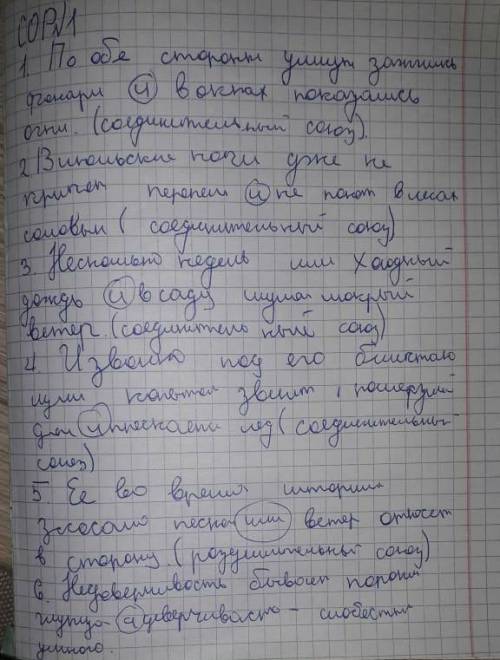 СОР№1
1. По обе стороны улицы зажглись
фонари и в окнах показались
огни. (соединительный союз).
2. Июльские ночи уже не
кричат перепела и не поют в лесах
соловьи (соединительный союз)
3. Несколько недель или холодный
дождь и в саду шумел мокрый
ветер. (соединительный союз)
4. под его блистаю
щими копытом звенит,
дол и лед (соединительный
союз)
5. Ее во время шторма
занесло песком или ветер относит
в сторону. (разделительный союз)
6. Недоверчивость бывает пороком
глупца а доверчивость - слабостью
умного.